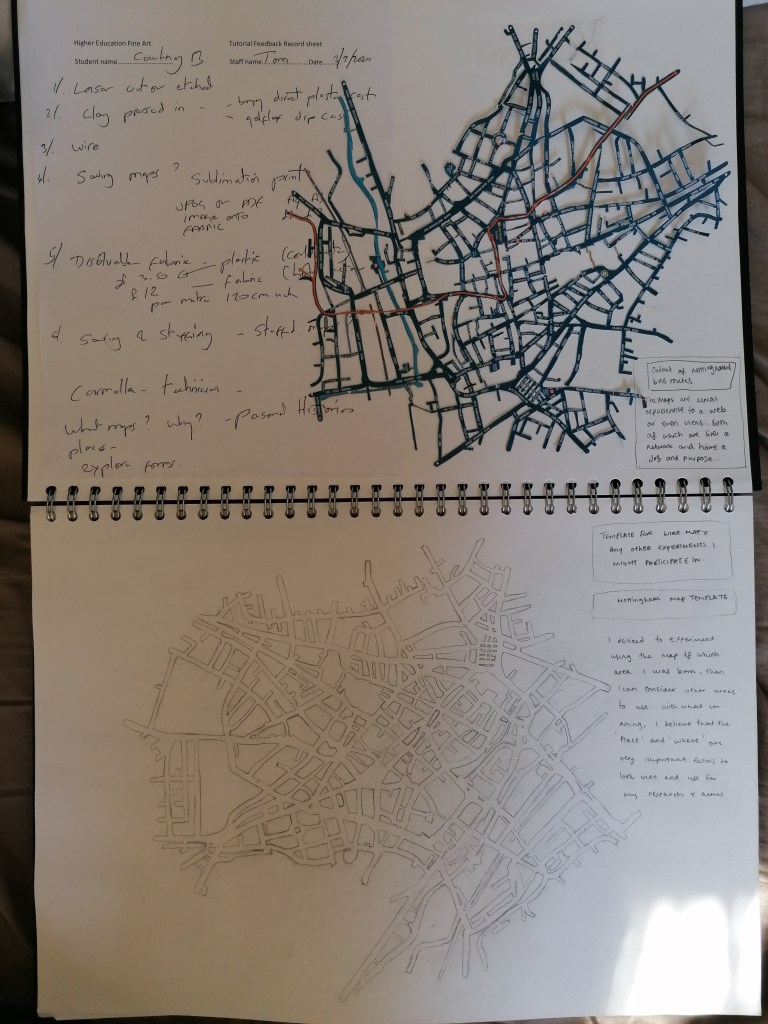 Higher Education Fine Art
Tutorial Feedback Record sheet
Student name Courtney B
Staff name Tom Date
1/. Laser cut or etched
2/. Clay pressed in - - direct plaster cast
- dip cast
3/. wire
4/. maps?
Sublimation print
JPEG or PDF
IMAGE ONTO
FABRIC
5/. Dissolvable fabric - plastic
£ 3.50 - fabric
£ 12
per metre 120cm wide
& stuffing - Stuffed
technician -
What maps? Why? - Personal Histories
places -
explore forms.
Cutout of Nottingham
bus routes
The maps are almost
representive to a web
or even veins. Both
of which are like a
network and have a
job and purpose.
TEMPLATE FOR WIRE MAP &
ANY OTHER EXPERIMENTS I
MIGHT PARTICIPATE IN.
NOTTINGHAM MAP TEMPLATE
I decided to experiment
using the map of which
area I was born, then
I can consider other areas
to use. With what im
doing, I believe that the
'Place' and 'where' are
very important factors to
look into and use for
my research &